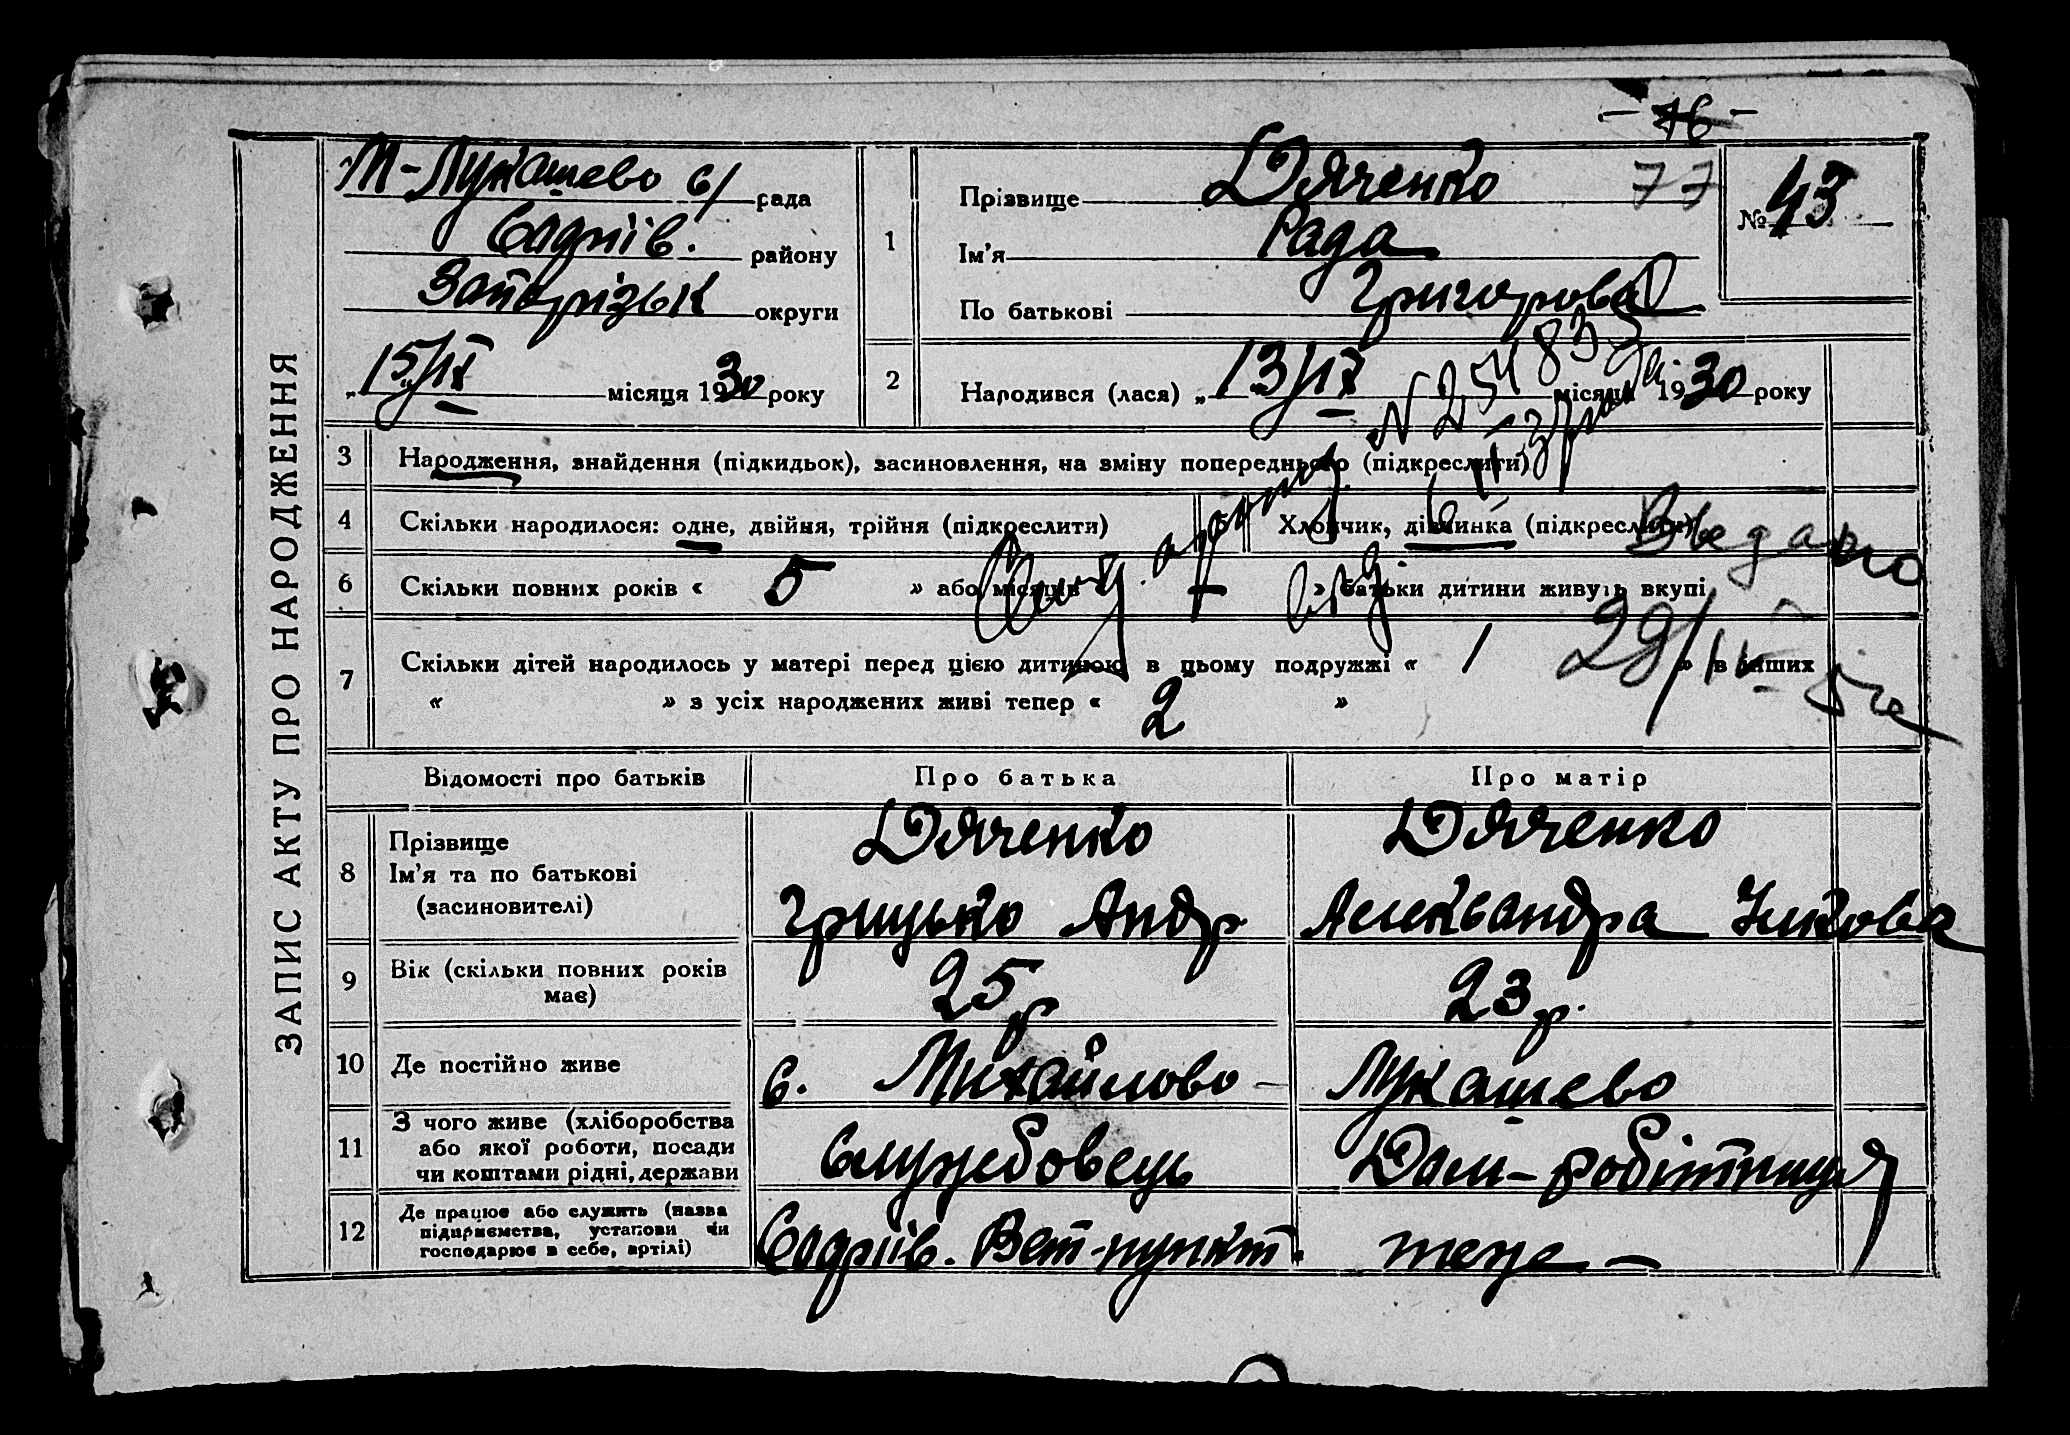 - 76 -
77
М-Лукашево с/ рада
Софіїв. району
Запорізьк округи
"15/IX місяця 1930 року
1
Прізвище Дяченко
Ім'я Рада
По батькові Григоровна
№ 43
2
Народився (лася) „ 13/IX місяця 1930 року
ЗАПИС АКТУ ПРО НАРОДЖЕННЯ
3 Народження, знайдення (підкидьок), засиновлення, на зміну попереднього (підкреслити)
4 Скільки народилося: одне, двійня, трійня (підкреслити)
5 Хлопчик, дівчинка (підкреслити)
6 Скільки повних років « 5 » або місяців – » батьки дитини живуть вкупі
7 Скільки дітей народилось у матері перед цією дитиною в цьому подружжі « 1 » в інших
« » з усіх народжених живі тепер « 2 »
N 254833
29/IV
Відомості про батьків Про батька Про матір
8 Прізвище Дяченко Дяченко
Ім'я та по батькові
(засиновителі) Грицько Андр Александра
9 Вік (скільки повних років
має) 25 р 23 р.
10 Де постійно живе с. Михайлово- Лукашево
11 З чого живе (хліборобства
або якої роботи, посади
чи коштами рідні, держави Службовець Дом-робітниця
12 Де працює або служить (назва
підприємства, установи чи
господарює в себе, артілі) Софіїв. Вет-пункт. теже –